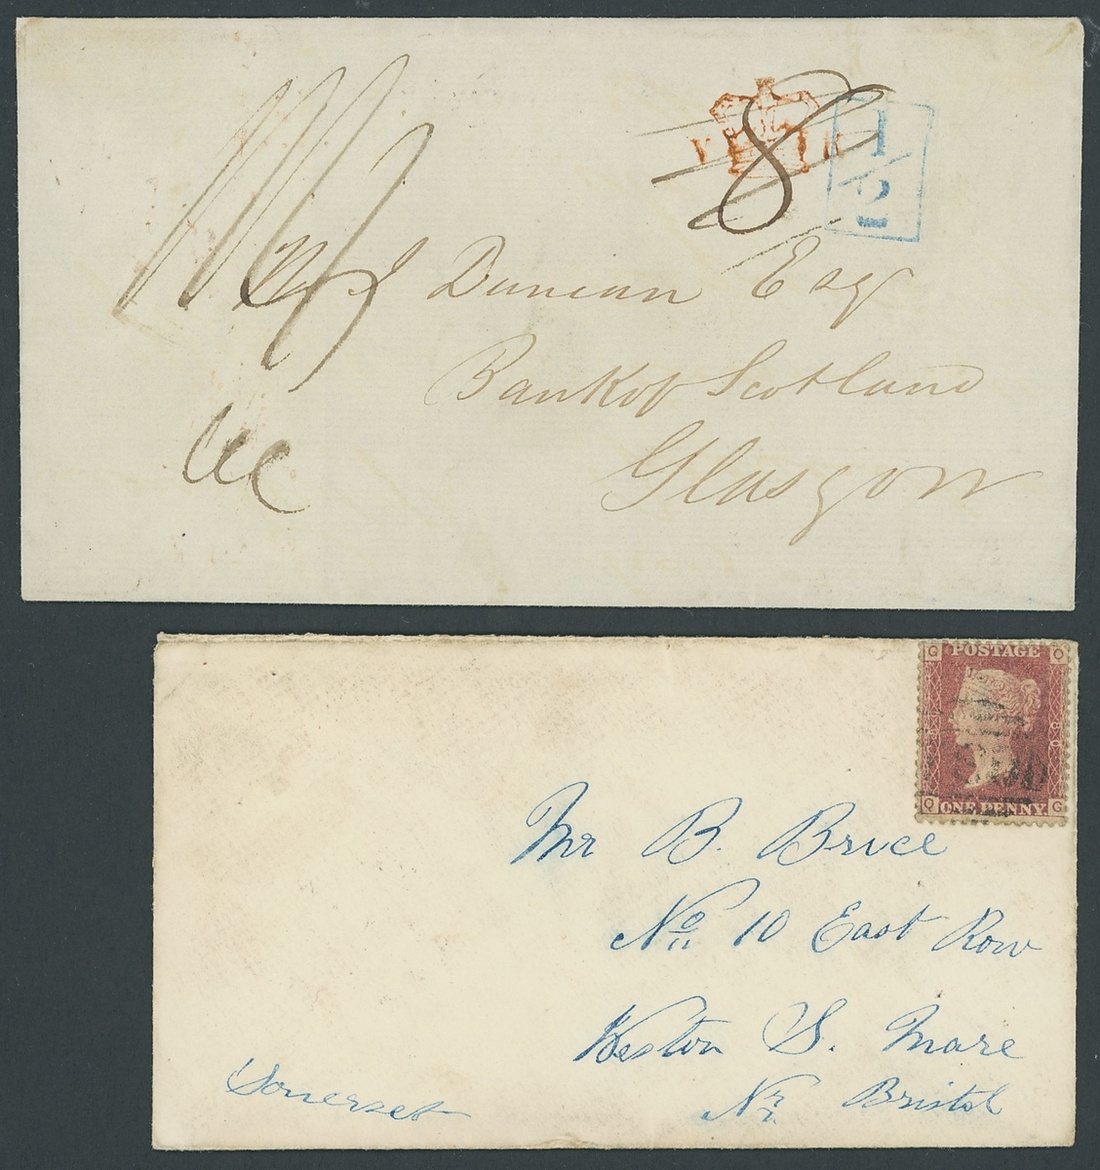 8
V R
1/2
Duncan Esq
Bank of Scotland
Glasgow
Q POSTAGE O
Q ONE PENNY G
Mr B. Brice
No 10 East Row
Weston S. Mare
Nr Bristol
Somerset